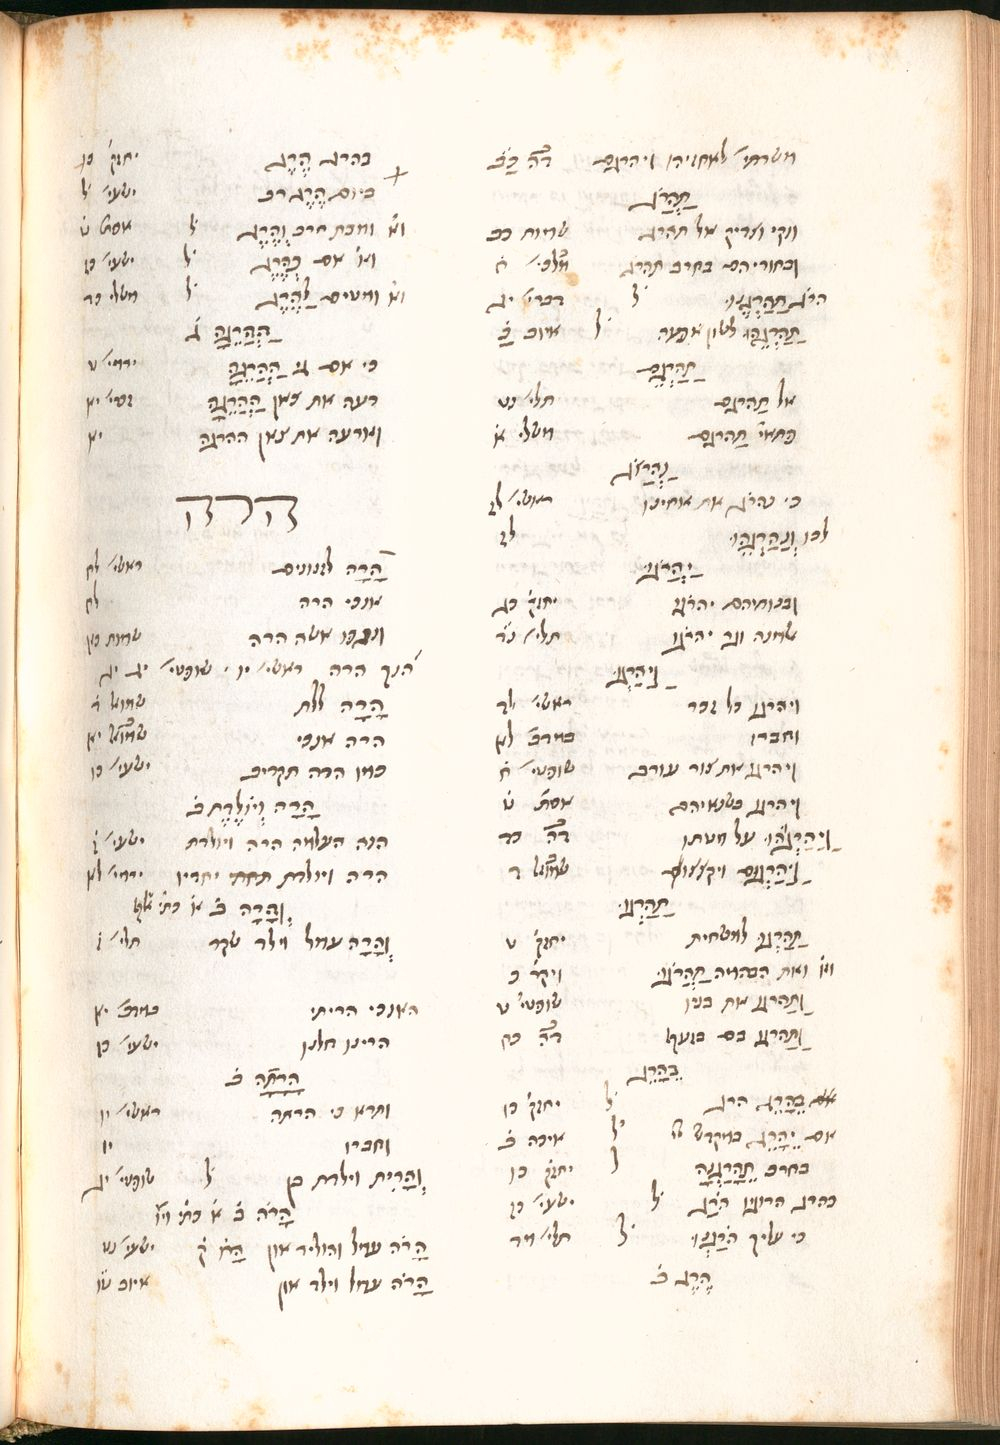 משרתי׳ לאחזיהו ויהרגם דהב כב
תַהֲרֹג
ונקי וצדיק אל תהרג שמות כג
ובחוריהם בחרב תהרג מלכי׳ ח
הרג תַהַרְגֶנּוּ ל דברי׳ יג
תַהַרְגֵהוּ לשון אפעה ל איוב כ
תַהַרְגֵם
אל תַהרגם תלי׳ נט
פתאי׳ תַהרגם משלי א
נַהֲרֹג
כי נהרג את אחינו ראשי׳ לז
לכו וְנַהַרְגֵהוּ לז
יַהֲרֹגוּ
ובנותיהם יהרֹגו יחזק׳ כג
אלמנה וגר יהרֹגו תלי׳ צד
וַיַהַרְגוּ
ויהרגו כל זכר ראשי׳ לד
וחברו במדב׳ לא
ויהרגו את עורב שופטי׳ ח
ויהרגו בשנאיהם אסת׳ ט
וַיַהַרְגֻהוּ על מטתו דהב כד
וַיַהַרְגֻם ויקצצו שמואל ד
תַהַרְגוּ
תַהַרְגוּ למשחית יחזק׳ ט
ואת הבהמה תַהֲרֹגוּ ויקר׳ כ
וַתהרגו את בניו שופטי׳ ט
וַתַהרגו בם בזעף דהב כח
בֵהָרֵג
בֵהָרֵג הרג ל יחזק׳ כו
אם יֵהָרֵג במקדש ל איכה ב
בחרב תֵהָרַגְנָה ל יחזק׳ כו
כהרג הרוגיו הֹרָג ל ישעי׳ כז
כי עליך הֹרַגְנוּ ל תלי׳ מד
הֶרֶג ב
בהרג הֶרֶג יחזק׳ כו
ביום הֶרֶג רב ישעי׳ ל
ומכת חרב וְהֶרֶג ל אסת׳ ט
אם כְהֶרֶג ל ישעי׳ כז
ומטים לַהֶרֶג ל משלי כד
הַהֲרֵגָה ג
כי אם גי הַהֲרֵגָה ירמי׳ ט
רעה את צאן הַהֲרֵגָה זכרי׳ יא
וארעה את צאן ההרגה יא
הרה
הָרָה לזנונים ראשי׳ לח
אנכי הרה לח
ונגפו אשה הרה שמות כא
הנך הרה ראשי׳ יו שופטי׳ יג יג
הָרָה ללת שמואל ד
הרה אנכי שמואל יא
כמו הרה תקריב ישעי׳ כו
הָרָה וְיוֹלֶדֶת ב
הנה העלמה הרה ויולדת ישעי׳ ז
הרה ויולדת תחתי יחדיו ירמי׳ לא
וְהָרָה ב
וְהָרָה עמל וילד שקר תלי׳ ז
האנכי הריתי במדב׳ יא
הרינו חלנו ישעי׳ כו
הָרָתָה ב
ותרא כי הרתה ראשי׳ יו
וחברו יו
וְהָרִית וילדת בן ל שופטי׳ יג
הָרֹה ב
הָרֹה עמל והוליד און ישעי׳ נט
הָרֹה עמל וילד און איוב טו